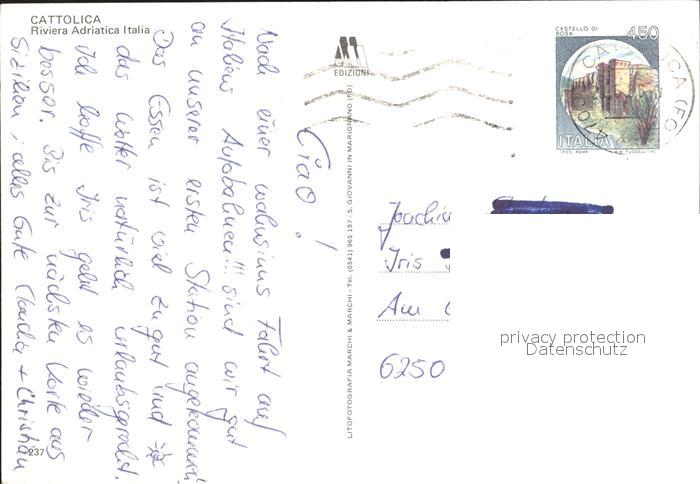 CATTOLICA
Riviera Adriatica Italia
EDIZIONI
CASTELLO DI BOSA
450
ITALIA
Ciao!
Nach einer wahnsinns Fahrt auf
Italiens Autobahnen!!! sind wir gut
an unserer ersten Station angekommen.
Das Essen ist viel zu gut und
das Wetter natürlich urlaubsgerecht.
Ich hoffe Iris geht es wieder
besser. Bis zur nächsten Karte aus
Sizilien, alles Gute Claudia + Christian
237
LITOFOTOGRAFIA MARCHI & MARCHI - Tel. (0541) 965 157 - S. GIOVANNI IN MARIGNANO (FO)
Joachim
Iris
Am
6250
privacy protection
Datenschutz